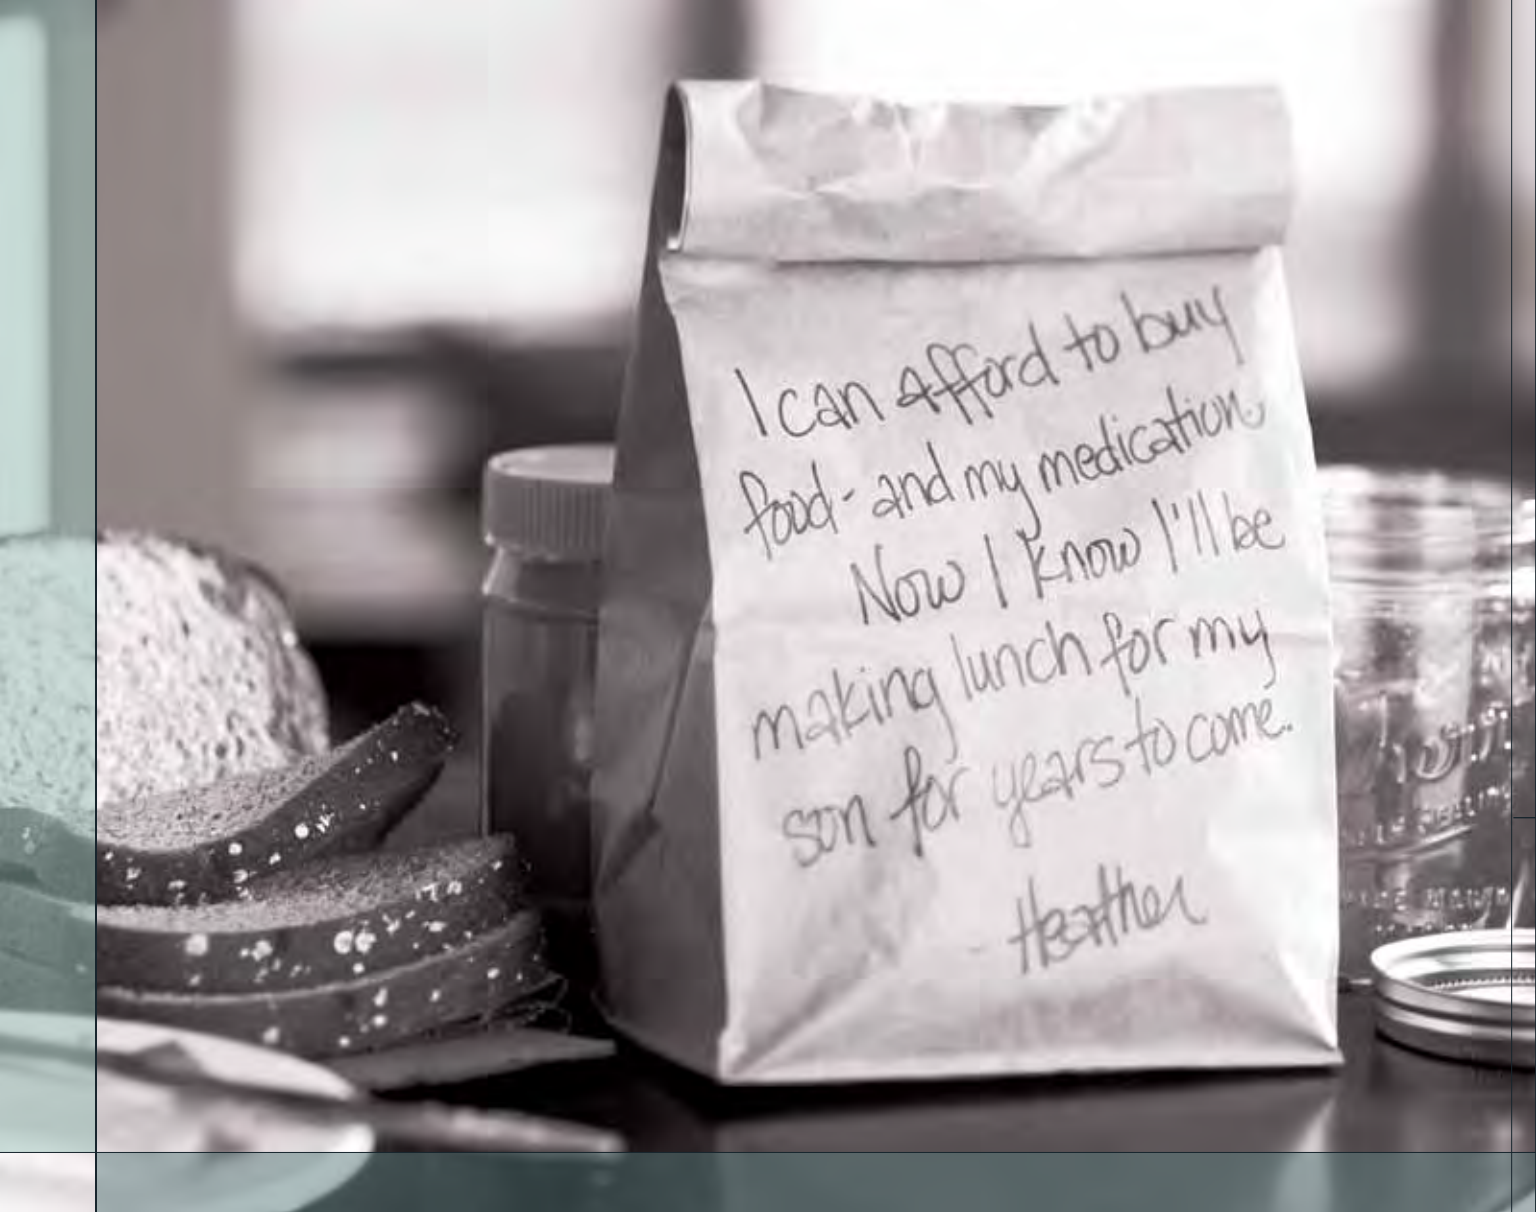 I can afford to buy
food - and my medication.
Now I know I'll be
making lunch for my
son for years to come.
Heather